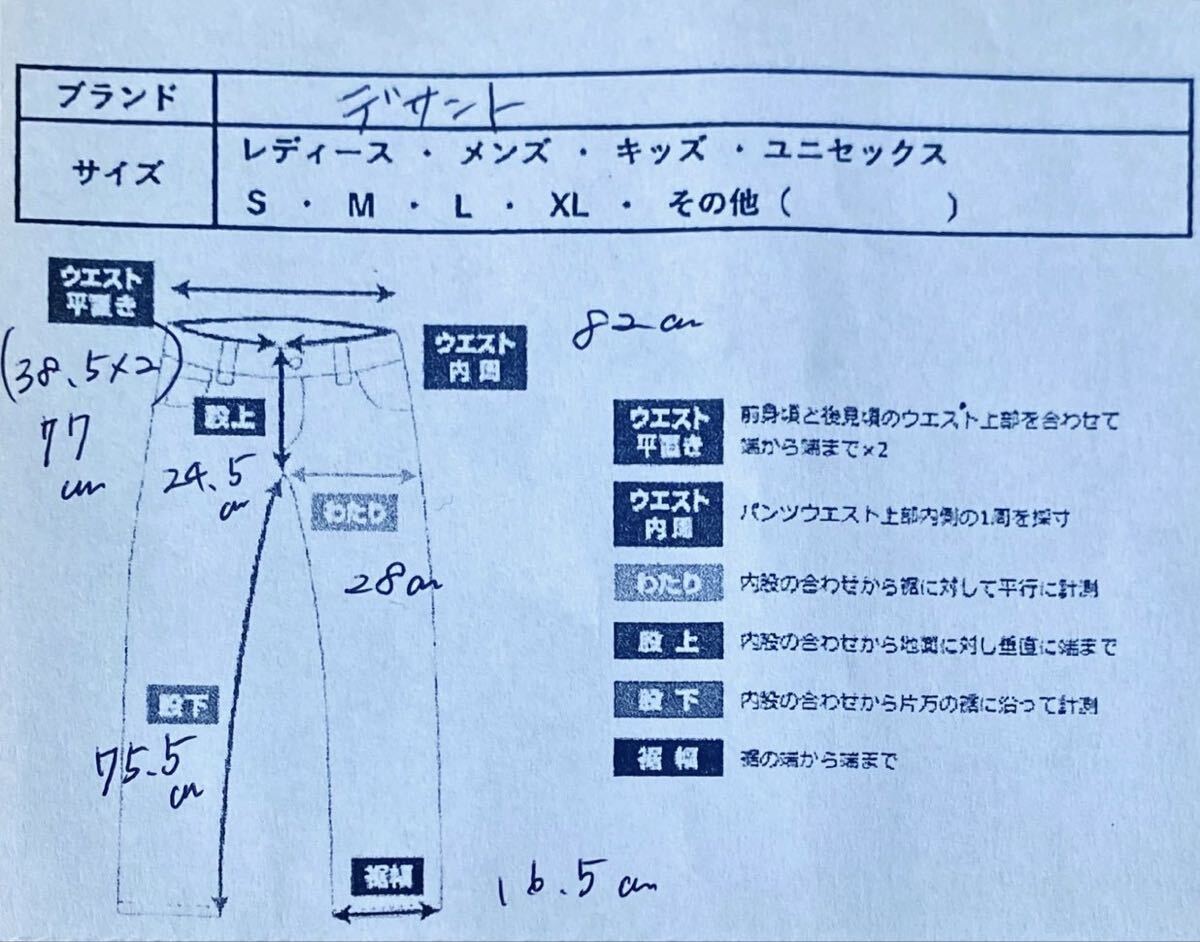 ブランド デサント
サイズ レディース ・ メンズ ・ キッズ ・ ユニセックス
S ・ M ・ L ・ XL ・ その他 ( )
ウエスト
平置き
(38.5×2)
77
cm
ウエスト
内周
82cm
股上
24.5
cm
わたり
28cm
股下
75.5
cm
裾幅
16.5cm
ウエスト
平置き
前身頃と後見頃のウエスト上部を合わせて
端から端まで×2
ウエスト
内周
パンツウエスト上部内側の1周を採寸
わたり 内股の合わせから裾に対して平行に計測
股上 内股の合わせから地面に対し垂直に端まで
股下 内股の合わせから片方の裾に沿って計測
裾幅 裾の端から端まで